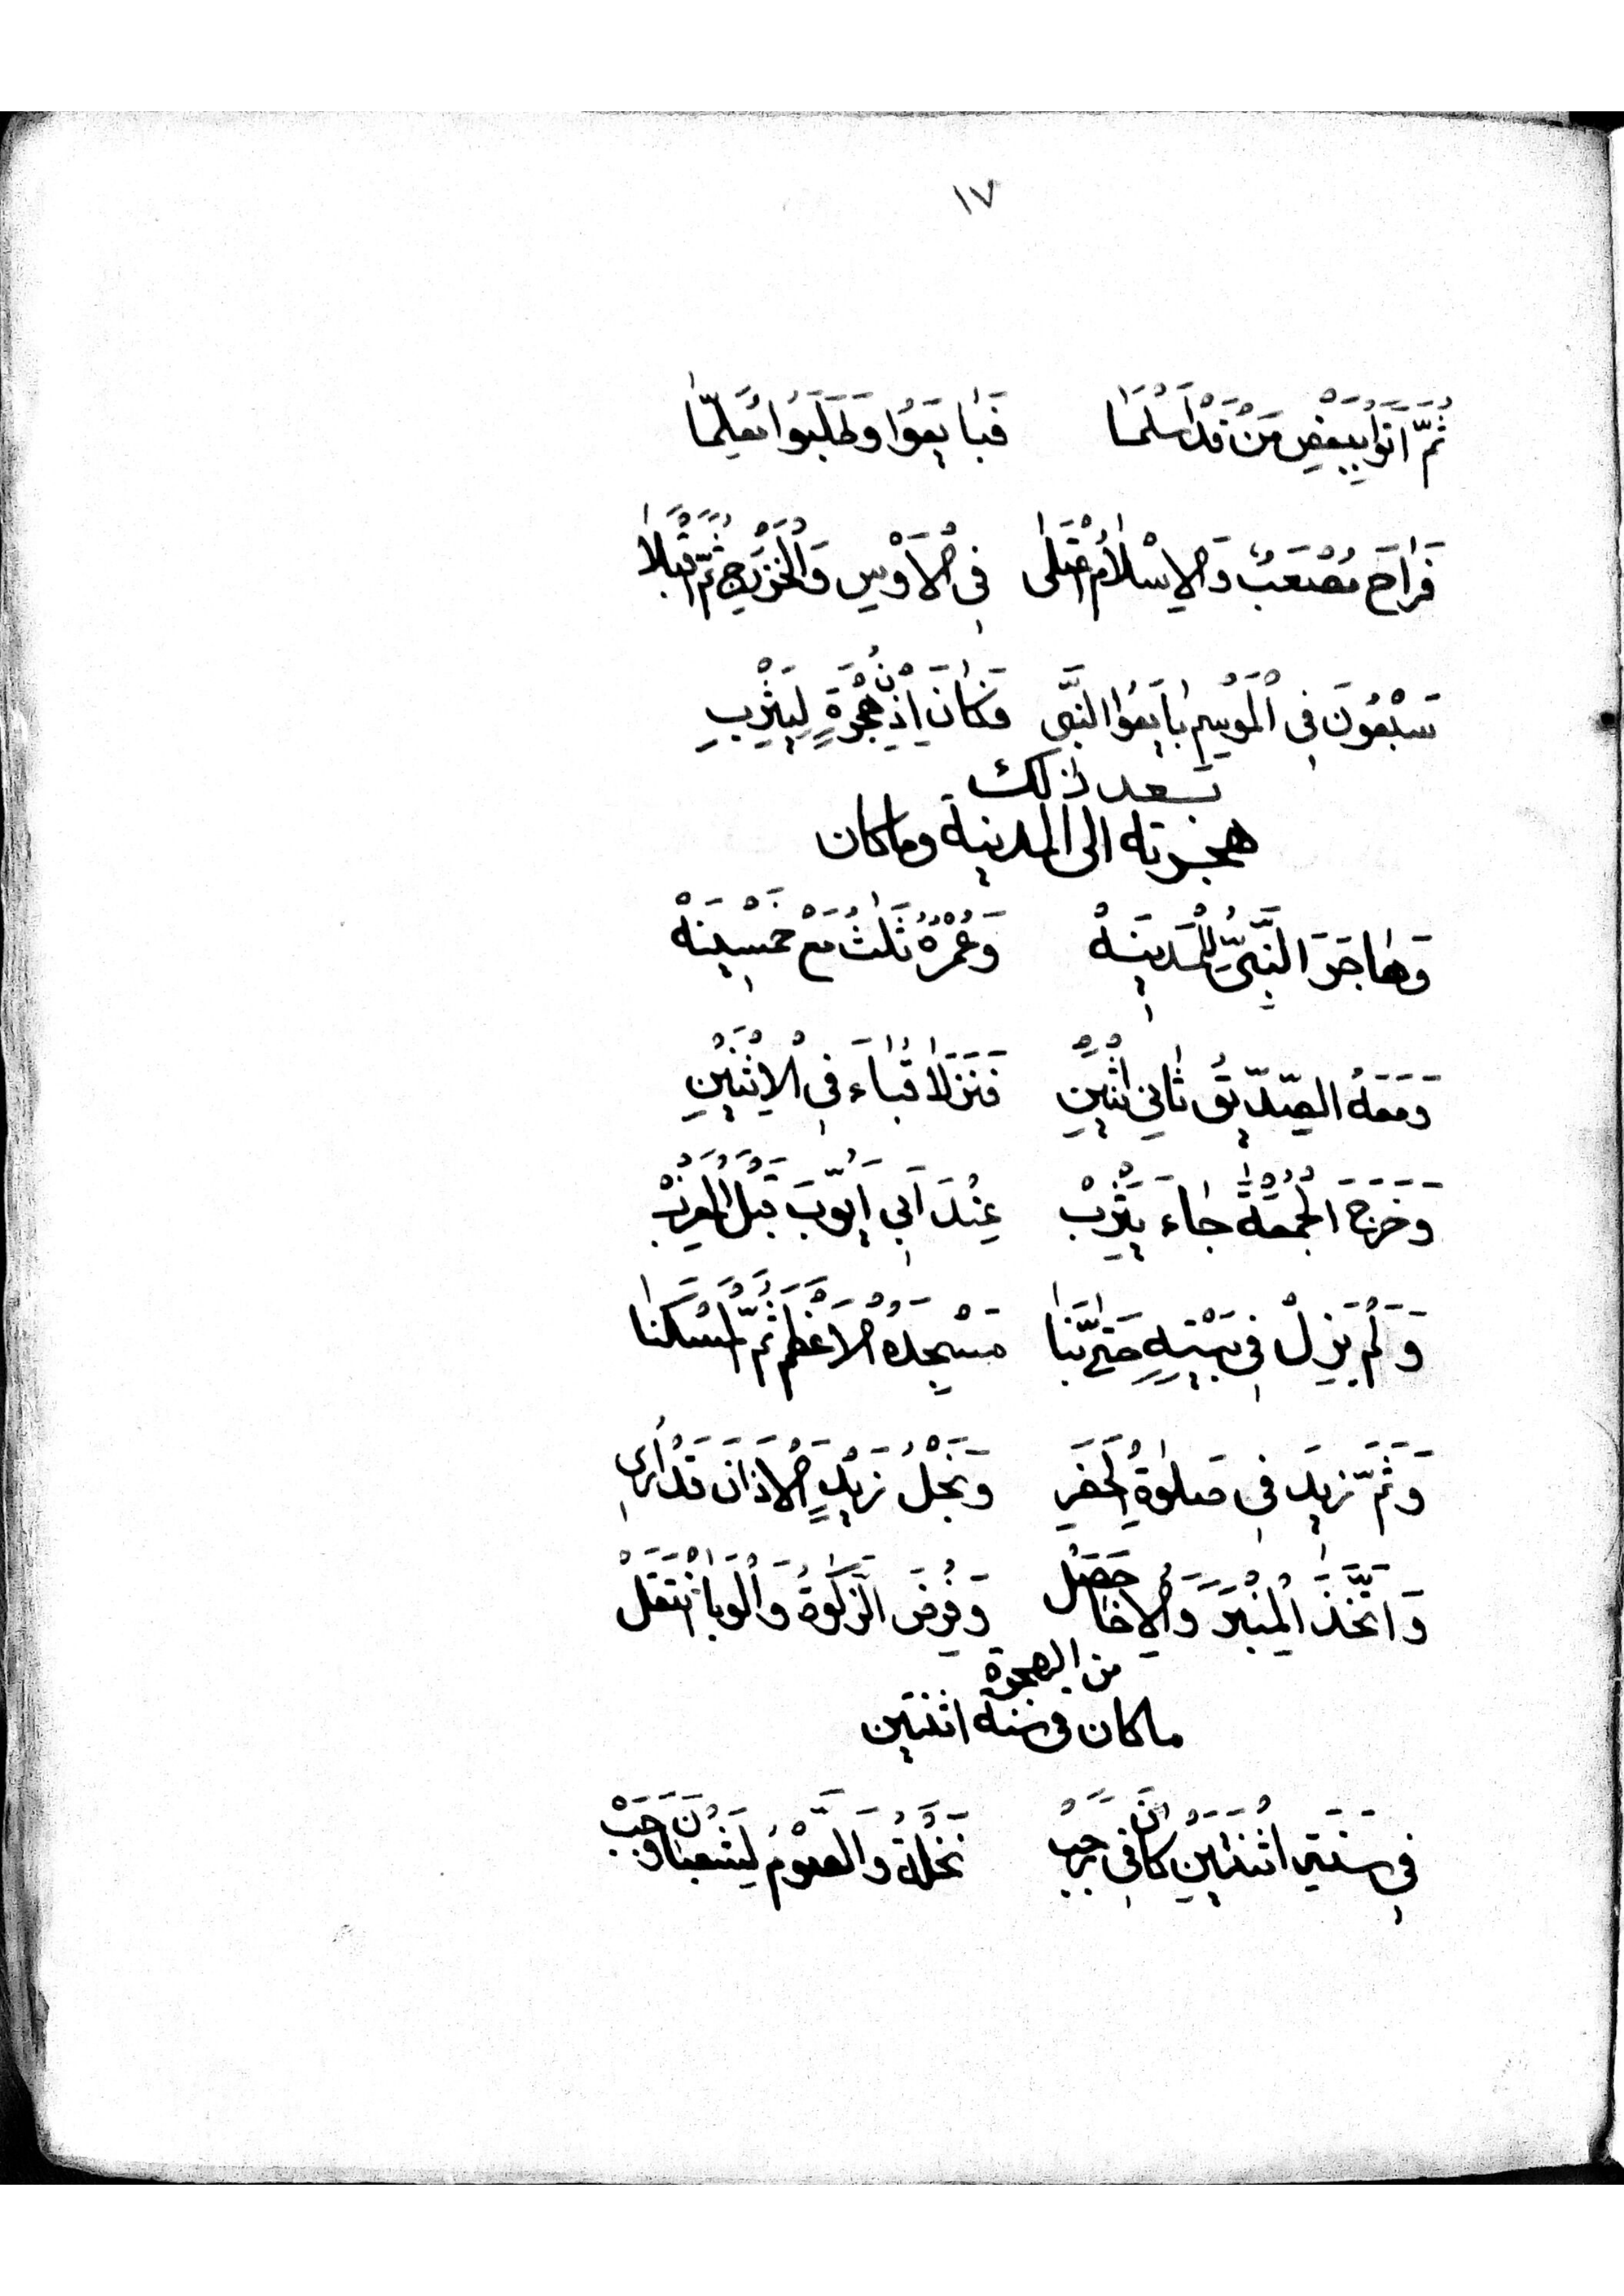 ١٧
ثُمَّ اَتَوْا بِبَعْضِ مَنْ قَدْ اَسْلَمَا فَبَايَعُوا وَطَلَبُوا مُعَلِّمًا
فَرَاحَ مُصْعَبٌ وَالْاِسْلَامُ اعْتَلٰى فِي الْاَوْسِ وَالْخَزْرَجِ ثُمَّ اَقْبَلَا
سَبْعُونَ فِي الْمَوْسِمِ بَايَعُوا النَّبِي فَكَانَ اِذْنُ هِجْرَةٍ لِيَثْرِبِ
بعد ذلك
هجرته الى المدينة وما كان
وَهَاجَرَ النَّبِيُّ لِلْمَدِينَهْ وَعُمْرُهُ ثَلٰثُ مَعْ خَمْسِينَهْ
وَمَعَهُ الصِّدِّيقُ ثَانِي اثْنَيْنِ فَنَزَلَا قُبَاءَ فِي الْاِثْنَيْنِ
وَخَرَجَ الْجُمُعَةَ جَاءَ يَثْرِبْ عِنْدَ اَبِي اَيُّوبَ قَبْلَ الْمَغْرِبْ
وَلَمْ يَزِلْ فِي بَيْتِهِ حَتّٰى بَنَا مَسْجِدَهُ الْاَعْظَمَ ثُمَّ الْمَسْكَنَا
وَثَمَّ زِيدَ فِي صَلٰوةِ الْحَضَرِ وَنَجْلُ زَيْدٍ الْاَذَانَ قَدْ اُرِي
وَاتَّخَذَ الْمِنْبَرَ وَالْاِخَا حَصَلْ وَفُرِضَ الزَّكٰوةُ وَالْوَبَا انْتَقَلْ
من الهجرة
ماكان فى سنة اثنتين
فِي سَنَةِ اثْنَتَيْنِ كَانَ فِي رَجَبْ نَخْلَةُ وَالصَّوْمُ لِشَعْبَانَ وَجَبْ